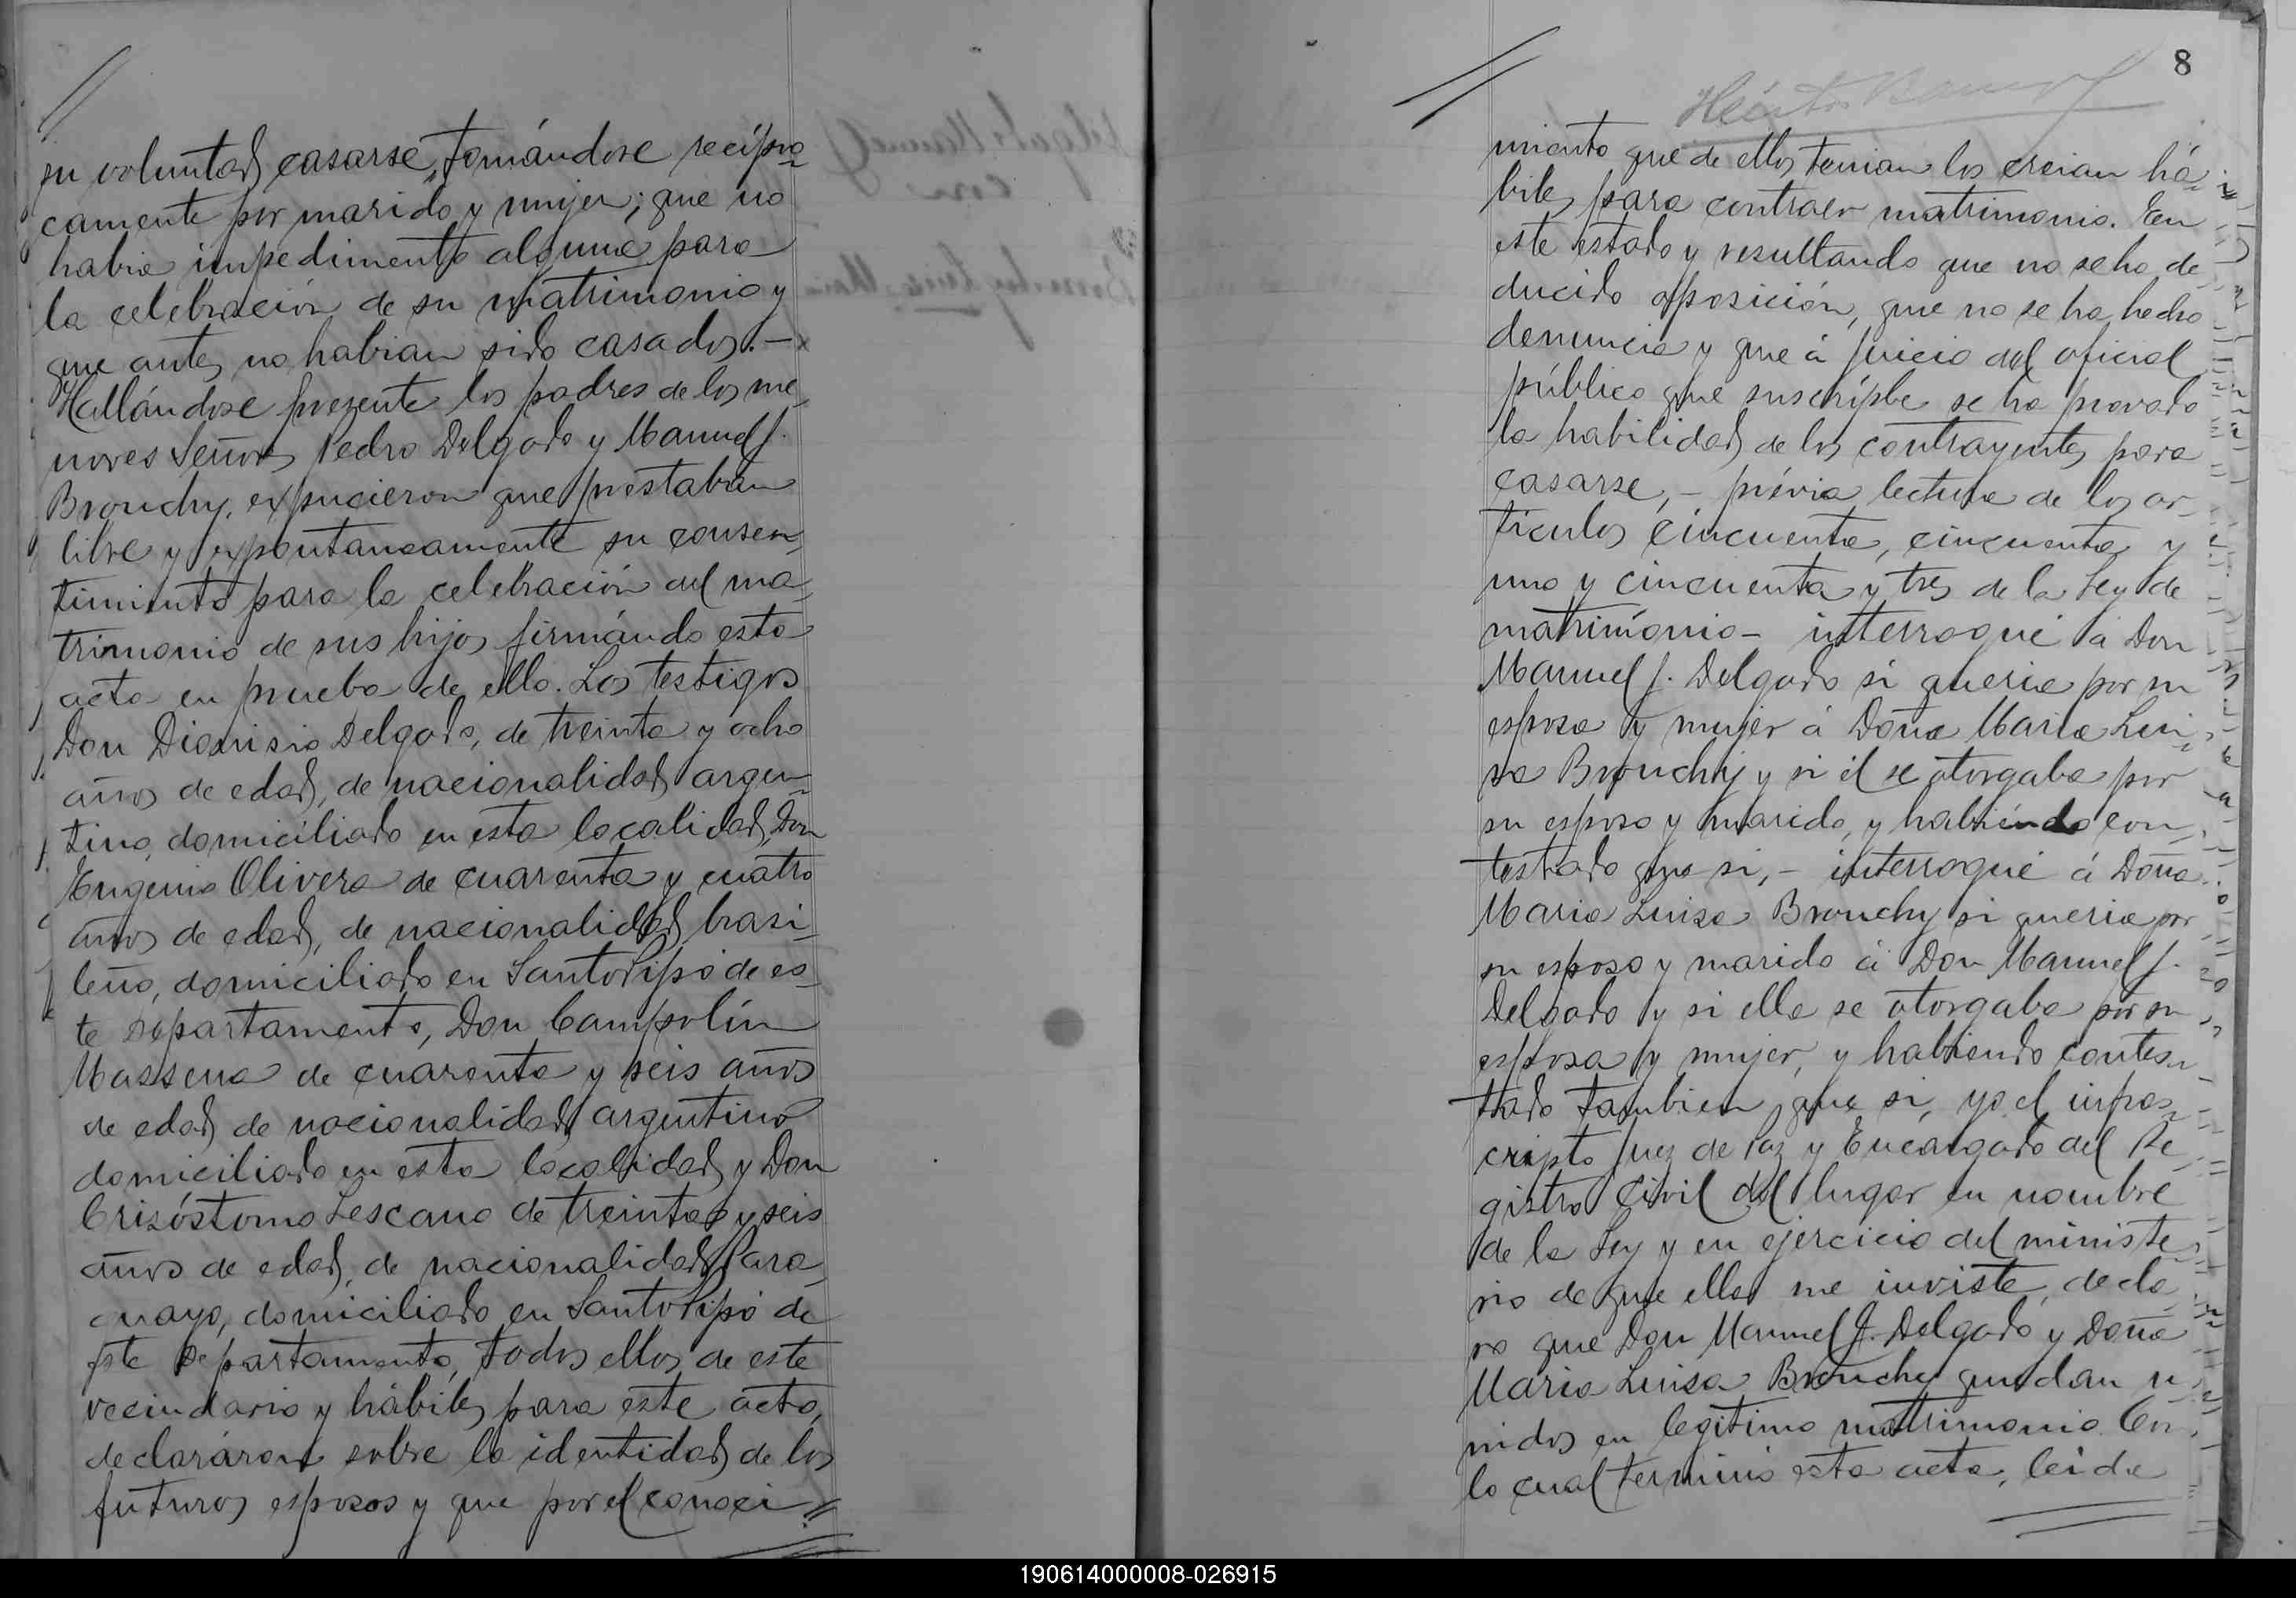 su voluntad casarse, tomándose recípro-
camente por marido y mujer; que no
habia impedimento alguno para
la celebración de su matrimonio y
que antes no habian sido casados.—
Hallándose presente los padres de los me-
nores Señores Pedro Delgado y Manuel J.
Brouchy, expucieron que prestaban
libre y expontaneamente su consen-
timiento para la celebración del ma-
trimonio de sus hijos firmándo esta
acta en prueba de ello. Los testigos
Don Dionisio Delgado, de treinta y ocho
años de edad, de nacionalidad argen-
tino, domiciliado en esta localidad, Don
Eugenio Olivera de cuarenta y cuatro
años de edad, de nacionalidad brasi-
leño, domiciliado en Santo Pipó de es-
te Departamento, Don Campolín
Massena de cuarenta y seis años
de edad de nacionalidad argentino
domiciliado en esta localidad y Don
Crisóstomo Lescano de treinta y seis
años de edad, de nacionalidad Para-
guayo, domiciliado en Santo Pipó de
este Departamento, todos ellos de este
vecindario y hábiles para este acto,
declaráron sobre la identidad de los
futuros esposos y que por el conoci-//
8
Héctor
miento que de ellos tenian los creian há-
biles para contraer matrimonio. En
este estado y resultando que no se ha de-
ducido oposición, que no se ha hecho
denuncia y que á juicio del oficial
público que suscríbe se ha provado
la habilidad de los contrayentes para
casarse, – prévia lectura de los ar-
tículos cincuenta, cincuenta y
uno y cincuenta y tres de la Ley de
matrimonio – interrogué á Don
Manuel J. Delgado si queria por su
esposa y mujer á Doña Maria Lui-
sa Brouchy y si él se otorgaba por
su esposo y marido, y habiéndo con-
testado que si, – interrogué á Doña
Maria Luisa Brouchy si queria por
su esposo y marido á Don Manuel J.
Delgado y si ella se otorgaba por su
esposa y mujer, y habiendo contes-
tado tambien que si, yo el infras-
cripto Juez de Paz y Encargado del Re-
gistro Civil del lugar en nombre
de la Ley y en ejercicio del ministe-
rio de que ella me inviste, decla-
ro que Don Manuel J. Delgado y Doña
Maria Luisa Brouchy quedan u-
nidos en legítimo matrimonio. Con
lo cual terminó esta acta, leida
190614000008-026915